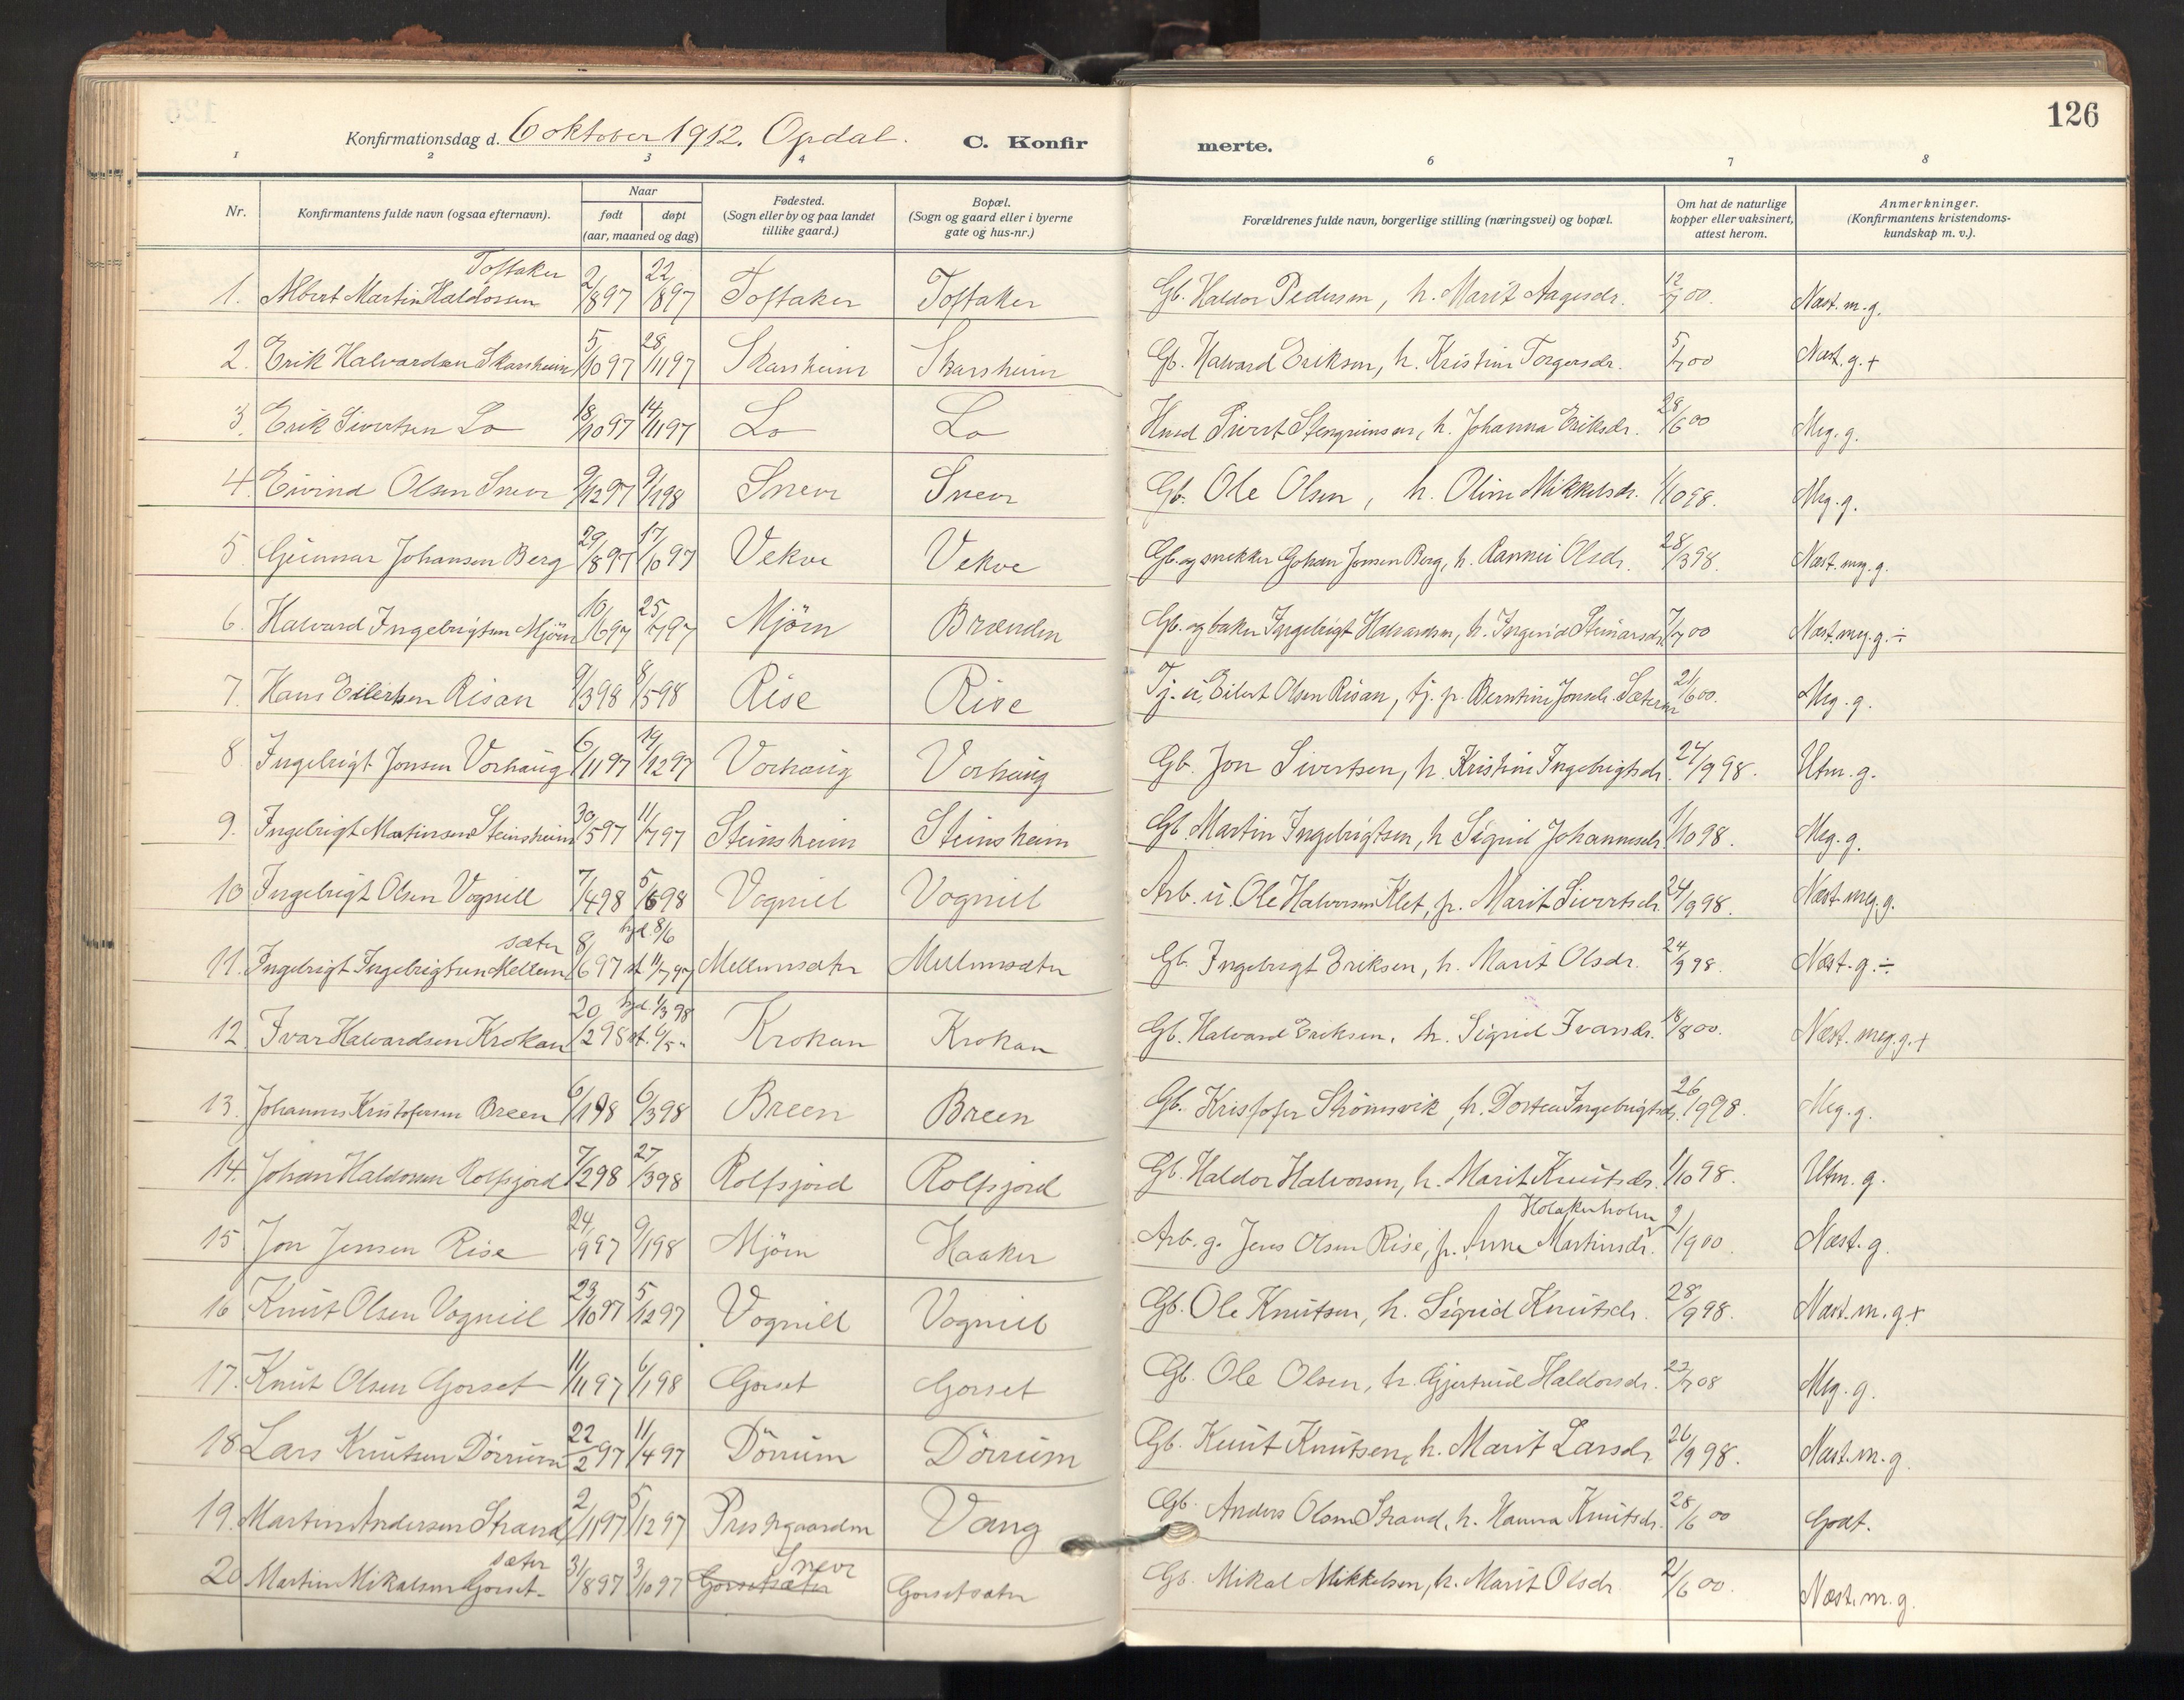 126
Konfirmationsdag d. 6 oktober 1912. Opdal. C. Konfir merte.
1 2 3 4 6 7 8
Nr. Konfirmantens fulde navn (ogsaa efternavn). Naar født døpt (aar, maaned og dag) Fødested. (Sogn eller by og paa landet tillike gaard.) Bopæl. (Sogn og gaard eller i byerne gate og hus-nr.) Forældrenes fulde navn, borgerlige stilling (næringsvei) og bopæl. Om hat de naturlige kopper eller vaksinert, attest herom. Anmerkninger. (Konfirmantens kristendoms-kundskap m. v.).
Toftaker
1. Albert Martin Haldorsen 2/8 97 22/8 97 Toftaker Toftaker Gb. Haldor Pedersen, h. Marit Aagesdr. 12/7 00. Næst. m. g.
2. Erik Halvardsen Skarsheim 5/10 97 28/11 97 Skarsheim Skarsheim Gb. Halvard Eriksen, h. Kristine Torgersdr. 5/7 00 Næst. g. +
3. Erik Sivertsen Lo 18/10 97 14/11 97 Lo Lo Husd Sivert Stengrimsen, h. Johanna Eriksdr. 28/6 00 Meg. g.
4. Eivind Olsen Snevr 9/12 97 9/1 98 Snevr Snevr Gb. Ole Olsen, h. Oline Mikkelsdr. 1/10 98. Meg. g.
5. Gunnar Johansen Berg 29/8 97 17/10 97 Vekve Vekve Gb. og snekker Johan Jonsen Berg, h. Rannei Olsdr. 28/3 98. Næst. meg. g.
6. Halvard Ingebrigtsen Mjöen 10/6 97 25/7 97 Mjöen Brænden Gb. og baker Ingebrigt Halvardsen, h. Ingerid Steinarsdr 7/7 00 Næst. meg. g. ÷
7. Hans Eilertsen Risan 9/3 98 8/5 98 Rise Rise Tj. u. Eilert Olsen Risan, tj. p. Berntine Jonsdr. Sæteren 21/6 00. Meg. g.
8. Ingebrigt Jonsen Vorhaug 6/11 97 19/12 97 Vorhaug Vorhaug Gb. Jon Sivertsen, h. Kristine Ingebrigtsdr. 24/9 98. Utm. g.
9. Ingebrigt Martinsen Steinsheim 30/5 97 11/7 97 Steinsheim Steinsheim Gb Martin Ingebrigtsen, h Sigrid Johannesdr. 1/10 98. Meg. g.
10 Ingebrigt Olsen Vognill 7/4 98 5/6 98 Vognill Vognill Arb. u. Ole Halvorsen Klet, p. Marit Sivertsdr. 24/9 98. Næst meg. g.
sæter hjd. 8/6
11. Ingebrigt Ingebrigtsen Mellem 8/6 97 st. 11/7 97 Mellemsæter Mellemsæter Gb. Ingebrigt Eriksen, h. Marit Olsdr. 24/9 98. Næst. g. ÷
hjd. 1/3 98
12 Ivar Halvardsen Krokan 20/2 98 Krokan Krokan Gb. Halvard Eriksen, h. Sigrid Ivarsdr. 18/8 00. Næst. meg. g. +
13. Johannes Kristofersen Breen 6/1 98 6/3 98 Breen Breen Gb. Kristofer Strömsvik, h. Dortea Ingebrigtsdr. 26/9 98. Meg. g.
14. Johan Haldorsen Rolfsjord 7/2 98 27/3 98 Rolfsjord Rolfsjord Gb. Haldor Halvorsen, h. Marit Knutsdr. 1/10 98. Utm. g.
Holakerholm
15. Jon Jensen Rise 24/9 97 9/1 98 Mjöen Haaker Arb. g. Jens Olsen Rise, p. Anne Martinsdr. 2/9 00. Næst. g.
16 Knut Olsen Vognill 23/10 97 5/12 97 Vognill Vognill Gb. Ole Knutsen, h. Sigrid Knutsdr. 28/9 98. Næst. m. g. +
17. Knut Olsen Gorset 11/11 97 6/1 98 Gorset Gorset Gb. Ole Olsen, h. Gjertrud Haldorsdr. 23/7 08 Meg. g.
18. Lars Knutsen Dörrum 22/2 97 11/4 97 Dörrum Dörrum Gb. Knut Knutsen, h. Marit Larsdr. 26/9 98. Næst. m. g
19. Martin Andersen Strand 2/11 97 5/12 97 Prestgaarden Vang Gb. Anders Olsen Strand, h. Hanna Knutsdr. 28/6 00 Godt.
sæter Snevr
20 Martin Mikalsen Gorset 31/8 97 3/10 97 Gorsetsæter Gorsetsæter Gb. Mikal Mikkelsen, h. Marit Olsdr 21/6 00. Næst. m. g.